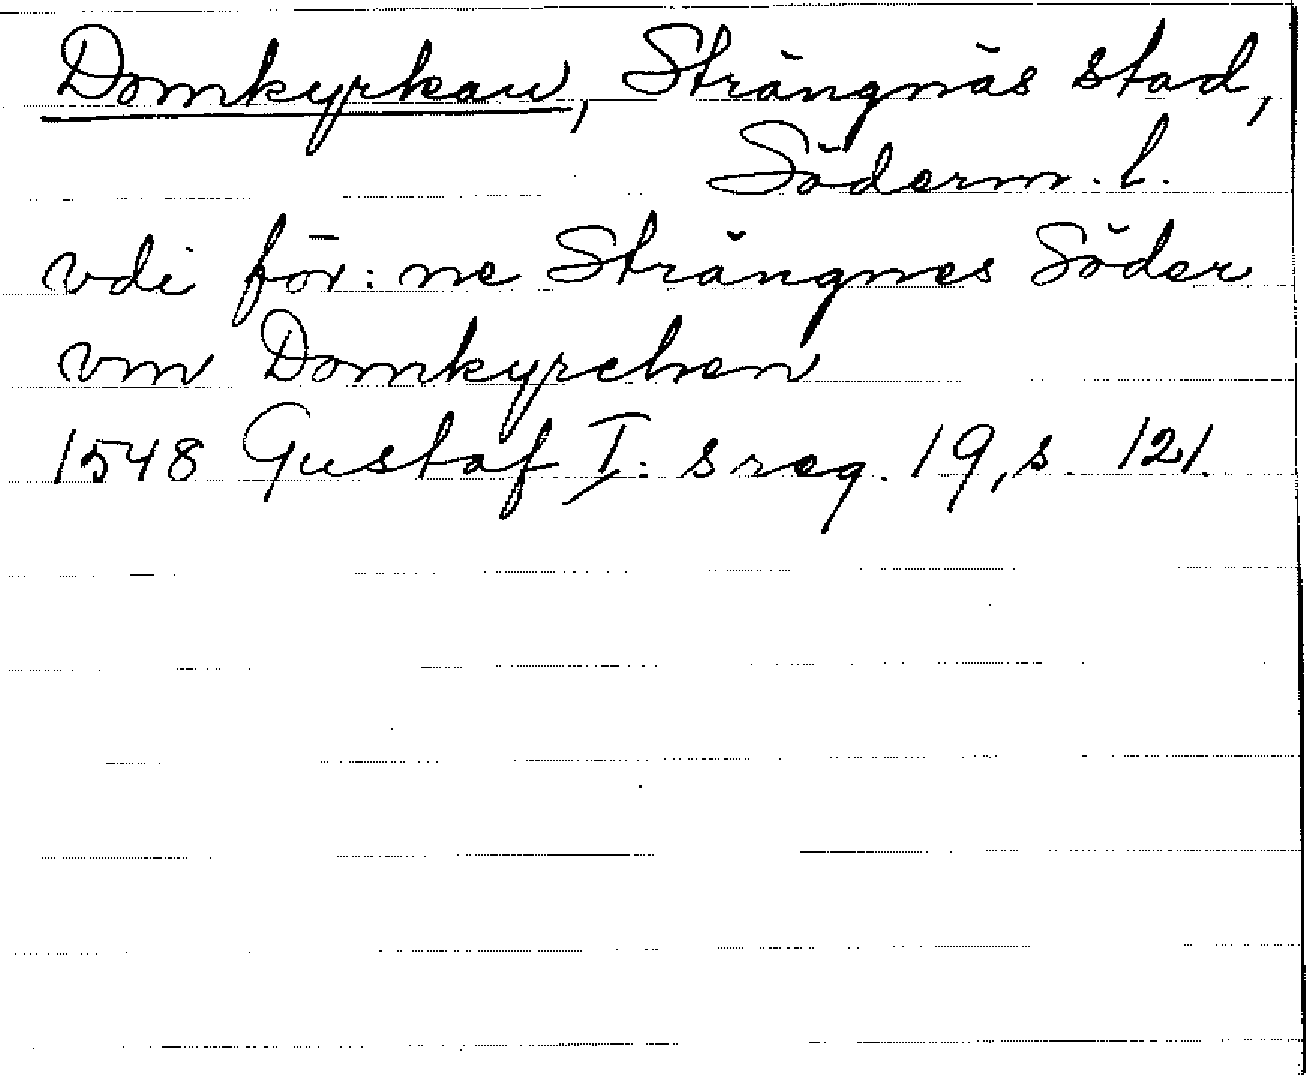 Domkyrkan, Strängnäs stad,
Söderm. l.
vdi för: ne Strängnes Söder
vm Domkyrchen
1548 Gustaf I: s reg. 19, s. 121.